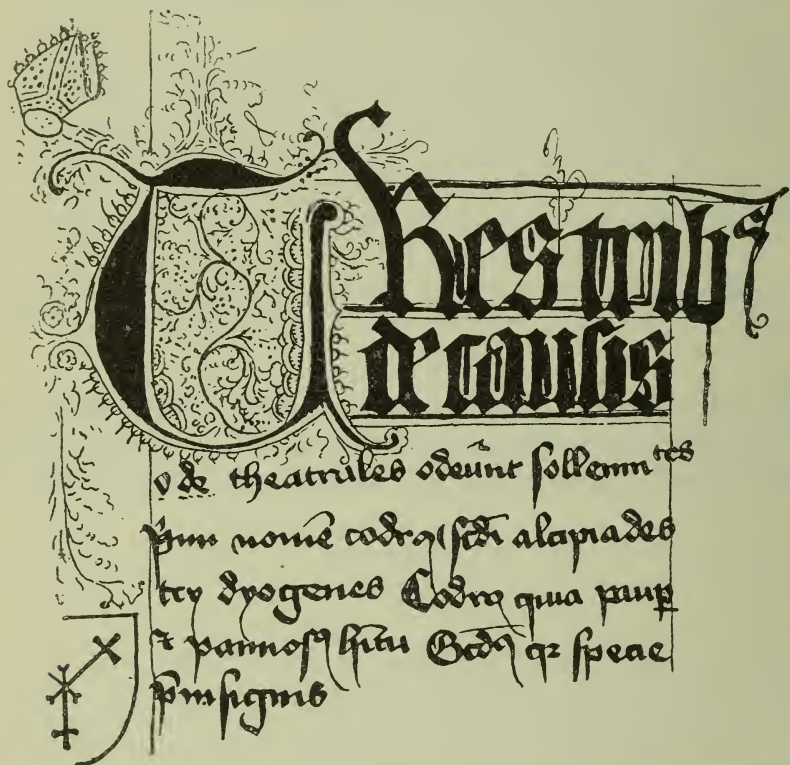 TRes trib⁹
de causis
vde theatrales odeūnt sollemn tes
p̄mi nomē codrꝰ scd̄i alcipiades
tcy dyogenes Codrꝰ quia paup̲
⁊ pannosꝰ hītu Scdꝰ qꝛ specie
p̄insignis